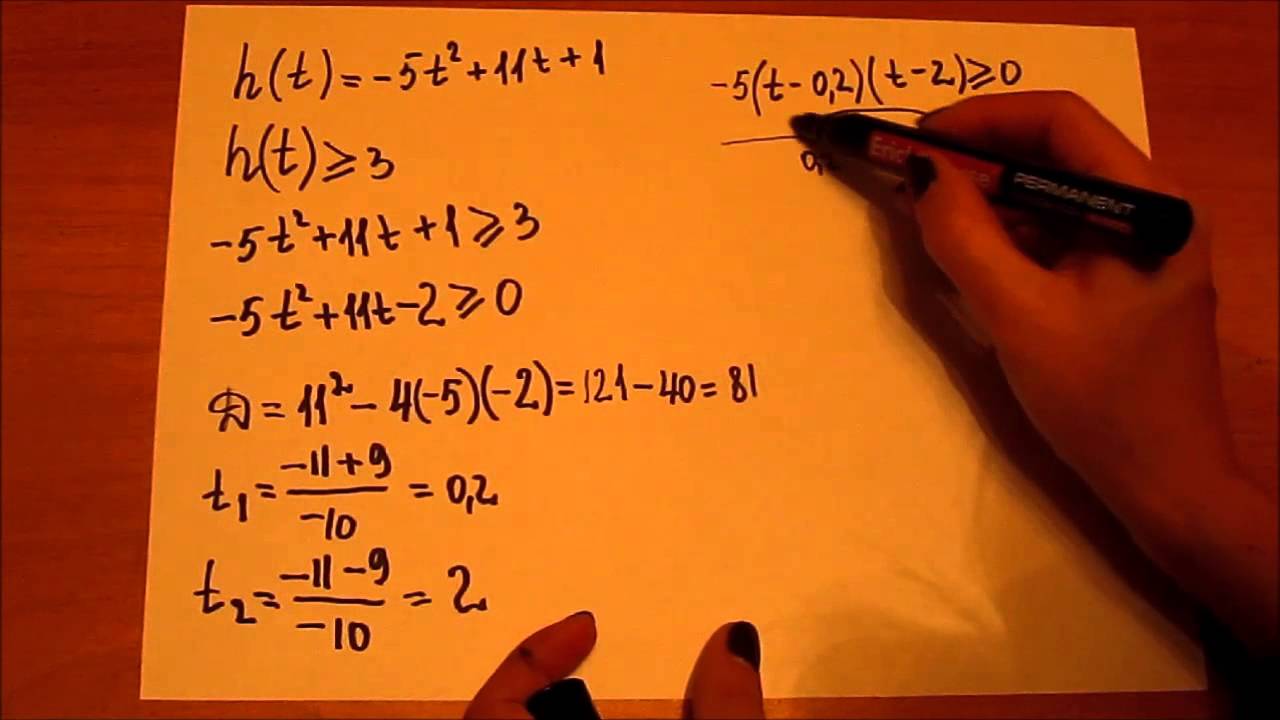 h(t) = -5t² + 11t + 1
h(t) ≥ 3
-5t² + 11t + 1 ≥ 3
-5t² + 11t - 2 ≥ 0
D = 11² - 4(-5)(-2) = 121 - 40 = 81
t₁ = (-11 + 9)/(-10) = 0,2
t₂ = (-11 - 9)/(-10) = 2
-5(t - 0,2)(t - 2) ≥ 0
PERMANENT